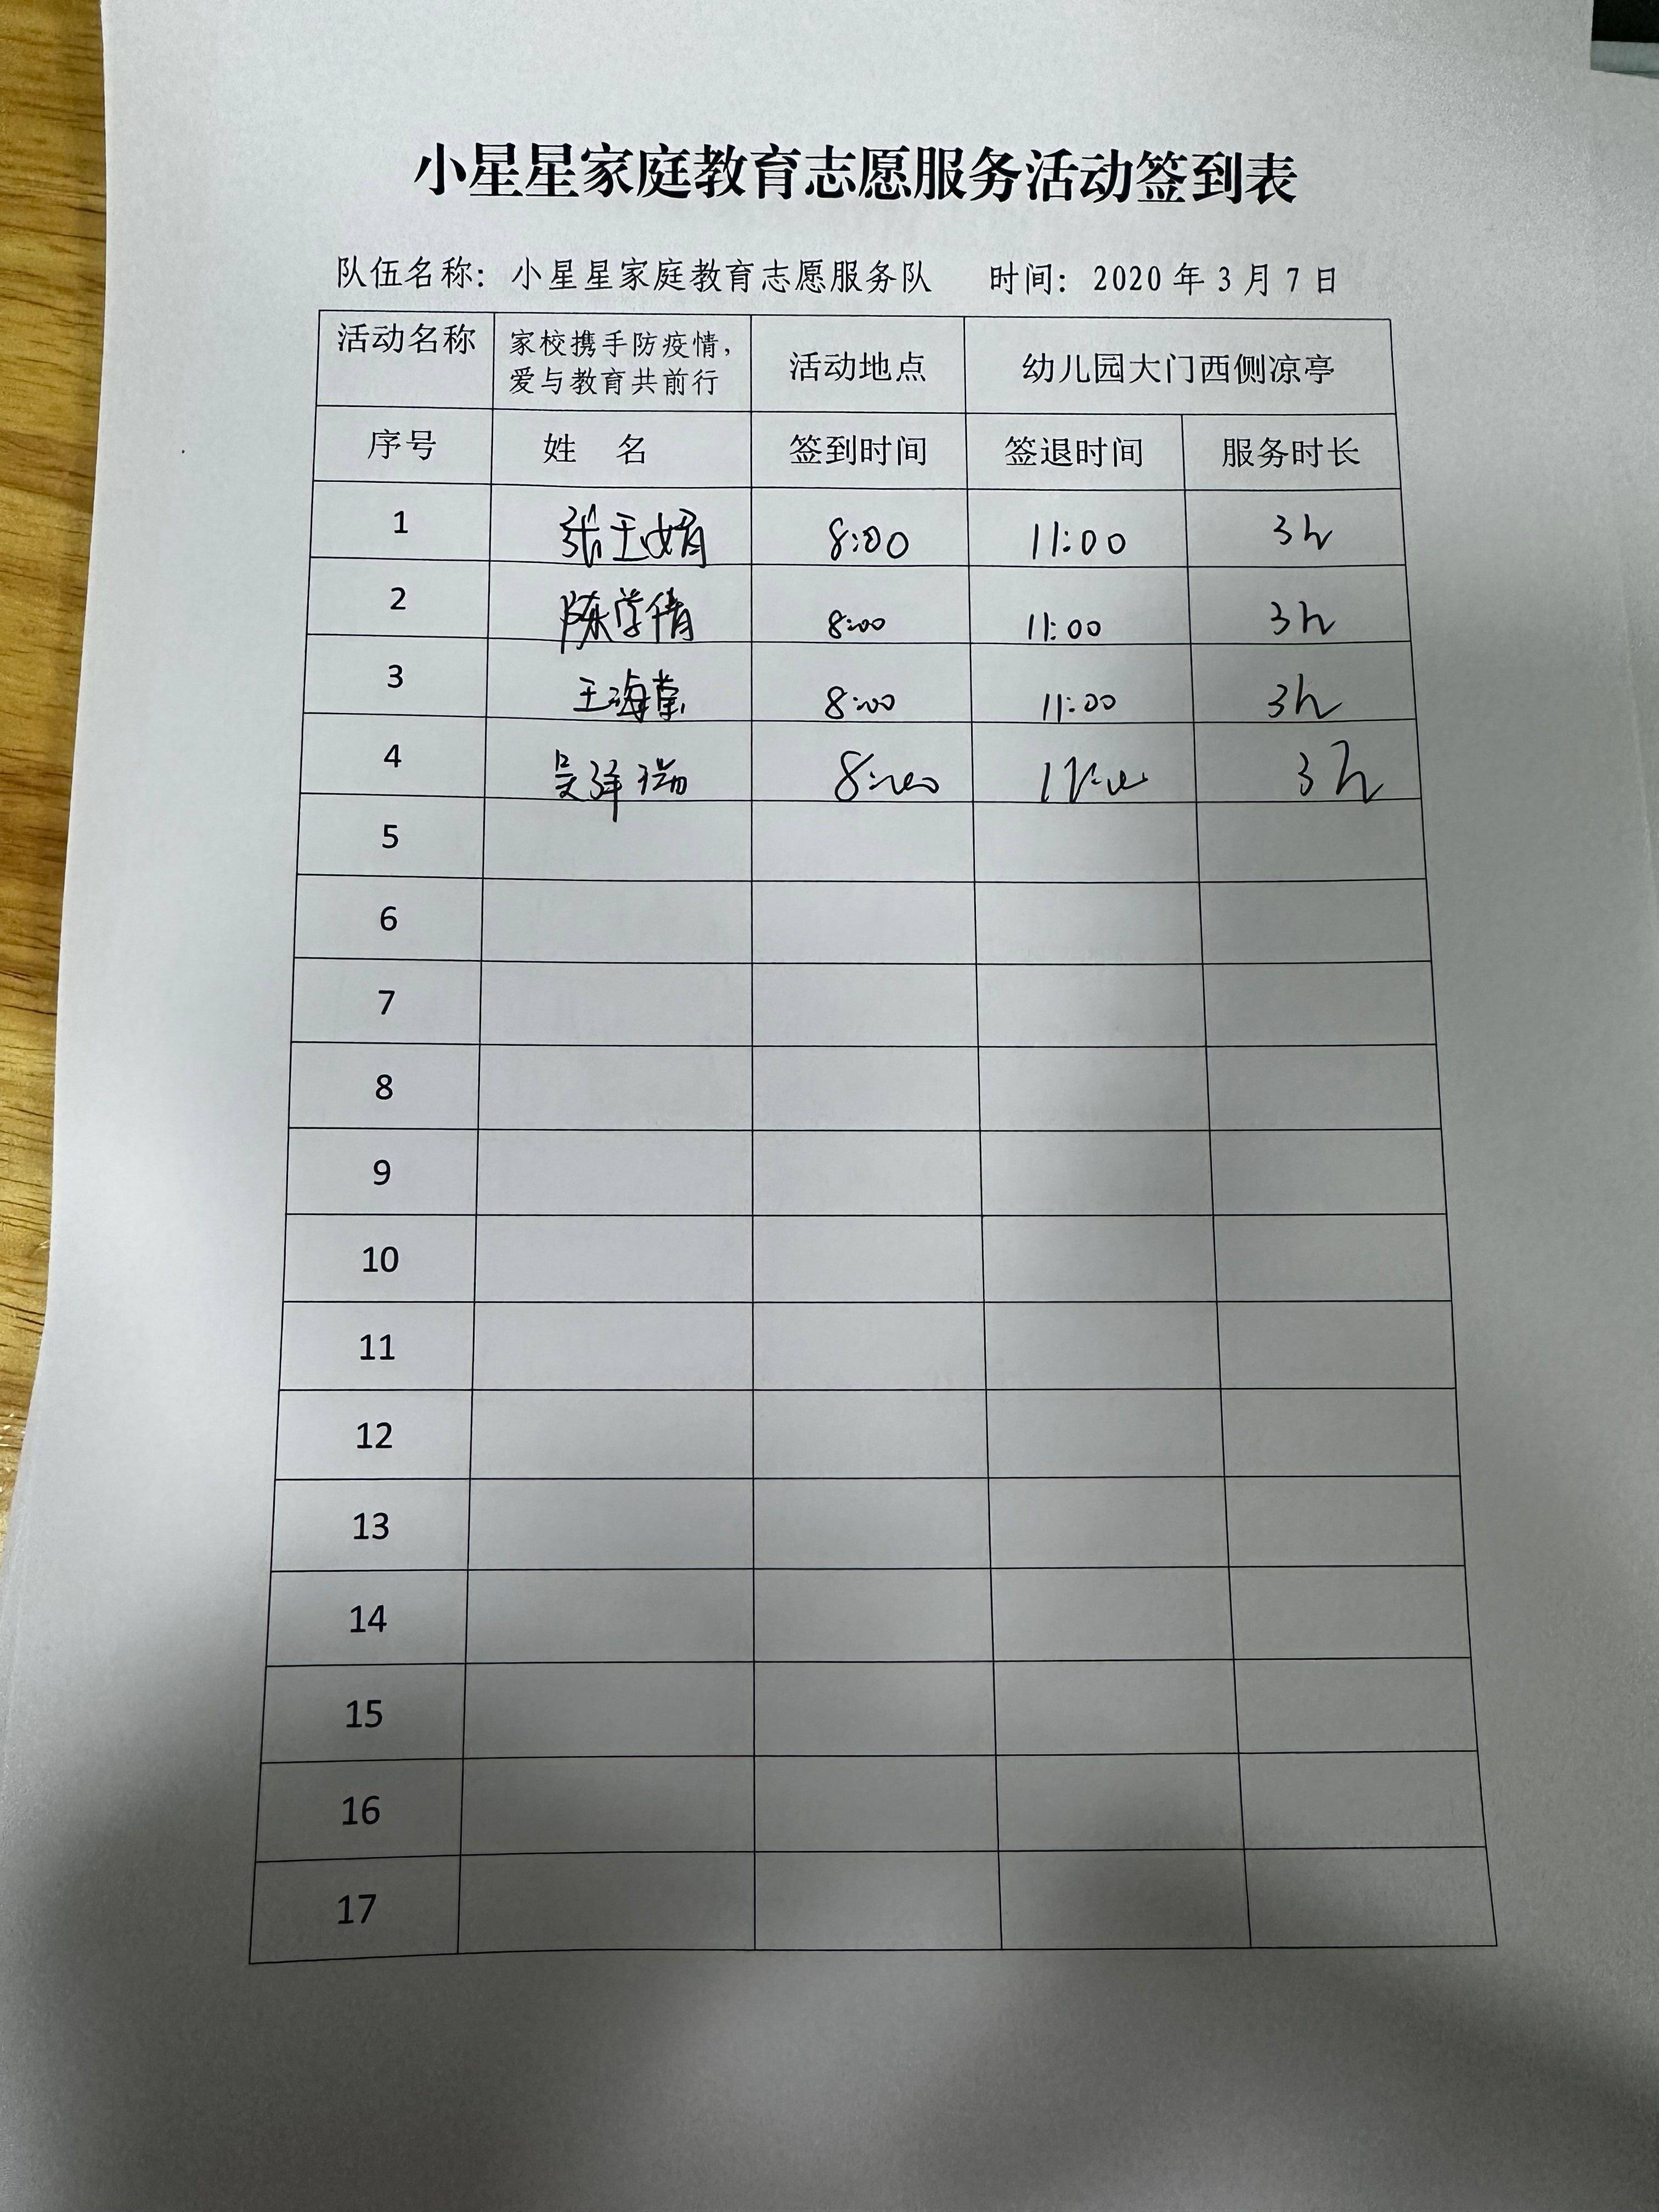 小星星家庭教育志愿服务活动签到表
队伍名称：小星星家庭教育志愿服务队 时间：2020 年 3 月 7 日
活动名称 家校携手防疫情，爱与教育共前行 活动地点 幼儿园大门西侧凉亭
序号 姓 名 签到时间 签退时间 服务时长
1 张王娟 8:00 11:00 3h
2 陈学倩 8:00 11:00 3h
3 王海棠 8:00 11:00 3h
4 吴 8:00 11:00 3h
5
6
7
8
9
10
11
12
13
14
15
16
17